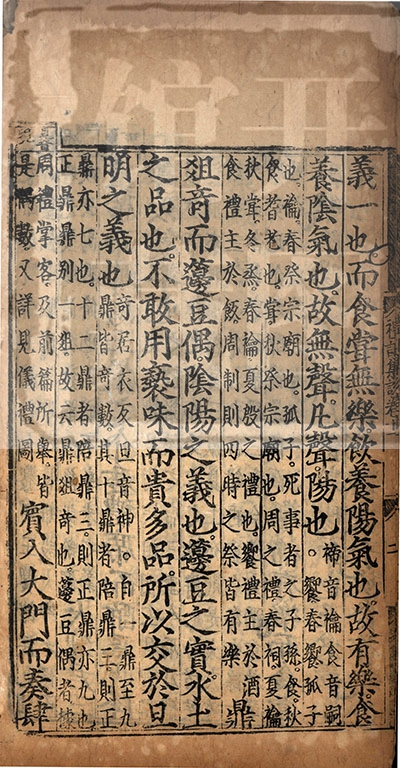 義一也而食嘗無樂飲養陽氣也故有樂食
養陰氣也故無聲凡聲陽也
禘音禴食音嗣
○饗春饗孤子
也禴春祭宗廟也孤子死事者之子孫食秋
食耆老也嘗秋祭宗廟也周之禮春祠夏禴
秋嘗冬烝春禴夏殷之禮也饗禮主於酒
食禮主於飯周制則四時之祭皆有樂
鼎
俎奇而籩豆偶陰陽之義也籩豆之實水土
之品也不敢用褻味而貴多品所以交於旦
明之義也
奇居衣反旦音神自一鼎至九
鼎皆奇數其十鼎者陪鼎三則正
鼎亦七也十二鼎者陪鼎三則正鼎亦九也
正鼎鼎別一俎故云鼎俎奇也籩豆偶者據
周禮掌客及前篇所舉皆
是偶數又詳見儀禮圖
賓入大門而奏肆